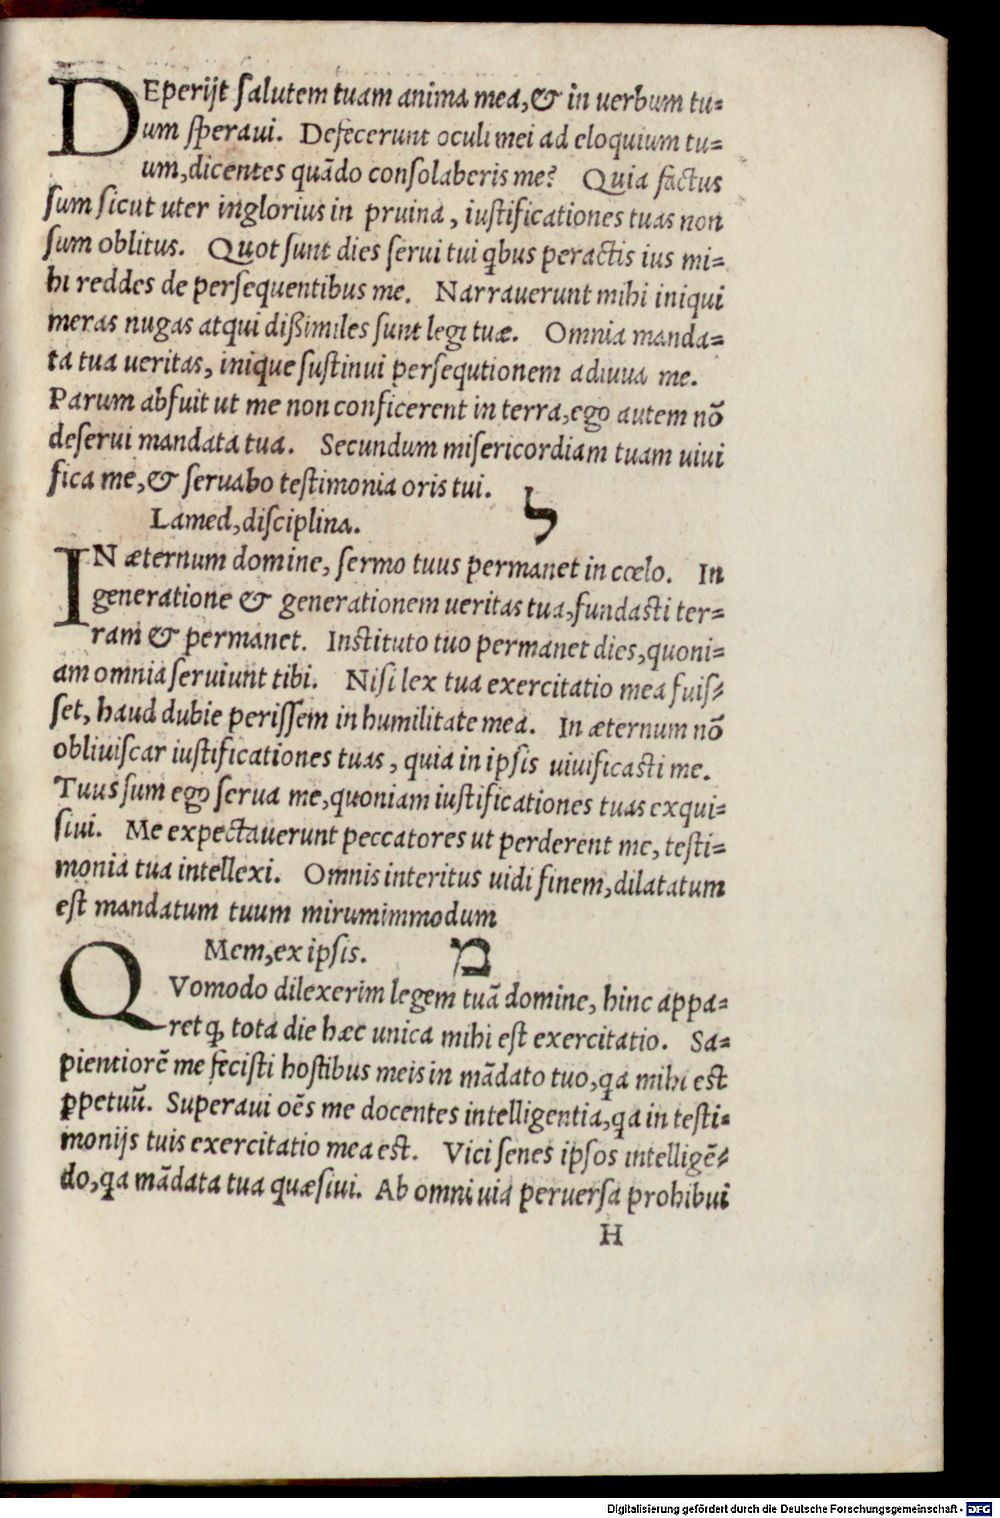 DEperijt salutem tuam anima mea,& in uerbum tu=
um speraui. Defecerunt oculi mei ad eloquium tu=
um,dicentes quādo consolaberis me? Quia factus
sum sicut uter inglorius in pruina, iustificationes tuas non
sum oblitus. Quot sunt dies serui tui qbus peractis ius mi=
hi reddes de persequentibus me. Narrauerunt mihi iniqui
meras nugas atqui dißimiles sunt legi tuæ. Omnia manda=
ta tua ueritas, inique sustinui persequtionem adiuua me.
Parum abfuit ut me non conficerent in terra,ego autem nō
deserui mandata tua. Secundum misericordiam tuam uiui
fica me,& seruabo testimonia oris tui. ל
Lamed,disciplina.
IN æternum domine, sermo tuus permanet in cœlo. In
generatione & generationem ueritas tua,fundasti ter=
ram & permanet. Instituto tuo permanet dies,quoni=
am omnia seruiunt tibi. Nisi lex tua exercitatio mea fuis=
set, haud dubie perissem in humilitate mea. In æternum nō
obliuiscar iustificationes tuas, quia in ipsis uiuificasti me.
Tuus sum ego serua me,quoniam iustificationes tuas exqui=
siui. Me expectauerunt peccatores ut perderent me, testi=
monia tua intellexi. Omnis interitus uidi finem,dilatatum
est mandatum tuum mirumimmodum
Mem,ex ipsis. מ
QVomodo dilexerim legem tuā domine, hinc appa=
ret ꝙ tota die hæc unica mihi est exercitatio. Sa=
pientiorē me fecisti hostibus meis in mādato tuo,qa mihi est
ꝑpetuū. Superaui oēs me docentes intelligentia,qa in testi=
monijs tuis exercitatio mea est. Vici senes ipsos intelligē=
do,qa mādata tua quæsiui. Ab omni uia peruersa prohibui
H
Digitalisierung gefördert durch die Deutsche Forschungsgemeinschaft - DFG